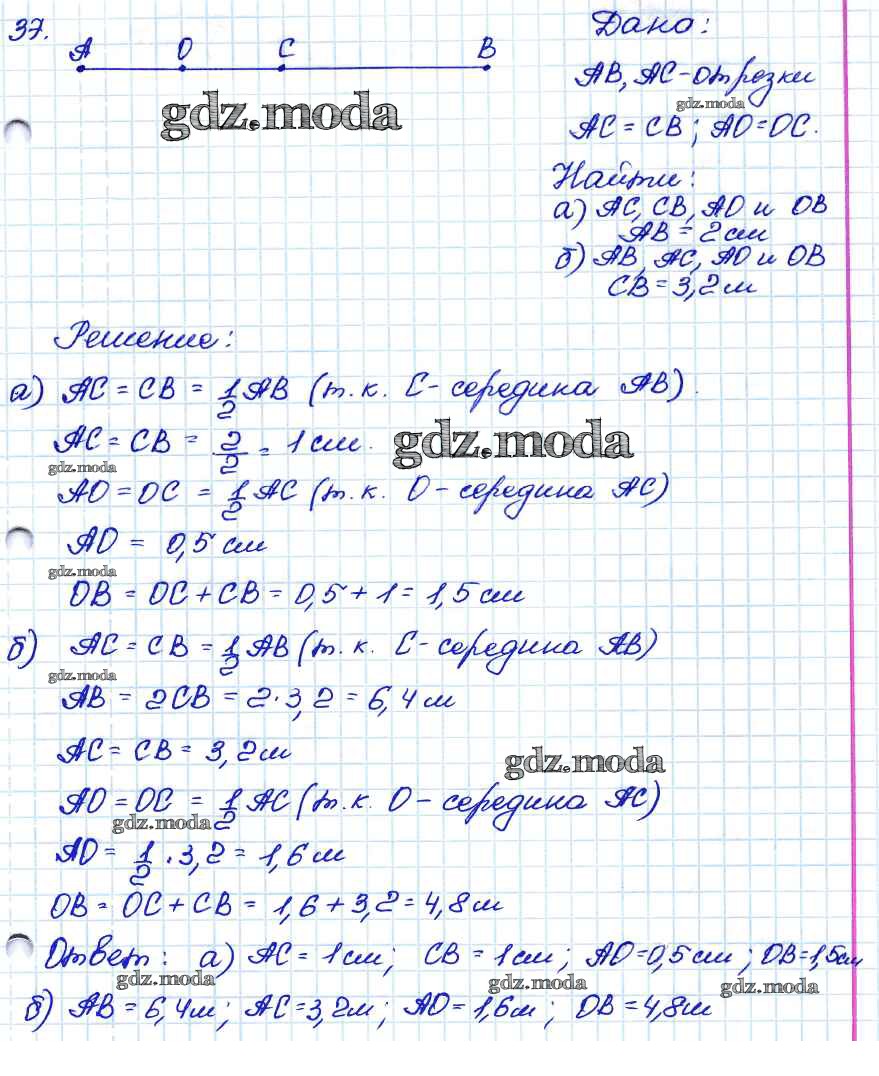 37.
A O C B
gdz.moda
Дано:
AB, AC - отрезки
gdz.moda
AC = CB; AO = OC.
Найти:
а) AC, CB, AO и OB
AB = 2 см
б) AB, AC, AO и OB
CB = 3,2 м
Решение:
а) AC = CB = 1/2 AB (т.к. C - середина AB).
AC = CB = 2/2 = 1 см.
gdz.moda
gdz.moda
AO = OC = 1/2 AC (т.к. O - середина AC)
AO = 0,5 см
gdz.moda
OB = OC + CB = 0,5 + 1 = 1,5 см
б) AC = CB = 1/2 AB (т.к. C - середина AB)
gdz.moda
AB = 2CB = 2·3,2 = 6,4 м
AC = CB = 3,2 м
gdz.moda
AO = OC = 1/2 AC (т.к. O - середина AC)
gdz.moda
AO = 1/2 · 3,2 = 1,6 м
OB = OC + CB = 1,6 + 3,2 = 4,8 м
Ответ: а) AC = 1 см; CB = 1 см; AO = 0,5 см; OB = 1,5 см
gdz.moda gdz.moda gdz.moda
б) AB = 6,4 м; AC = 3,2 м; AO = 1,6 м; OB = 4,8 м